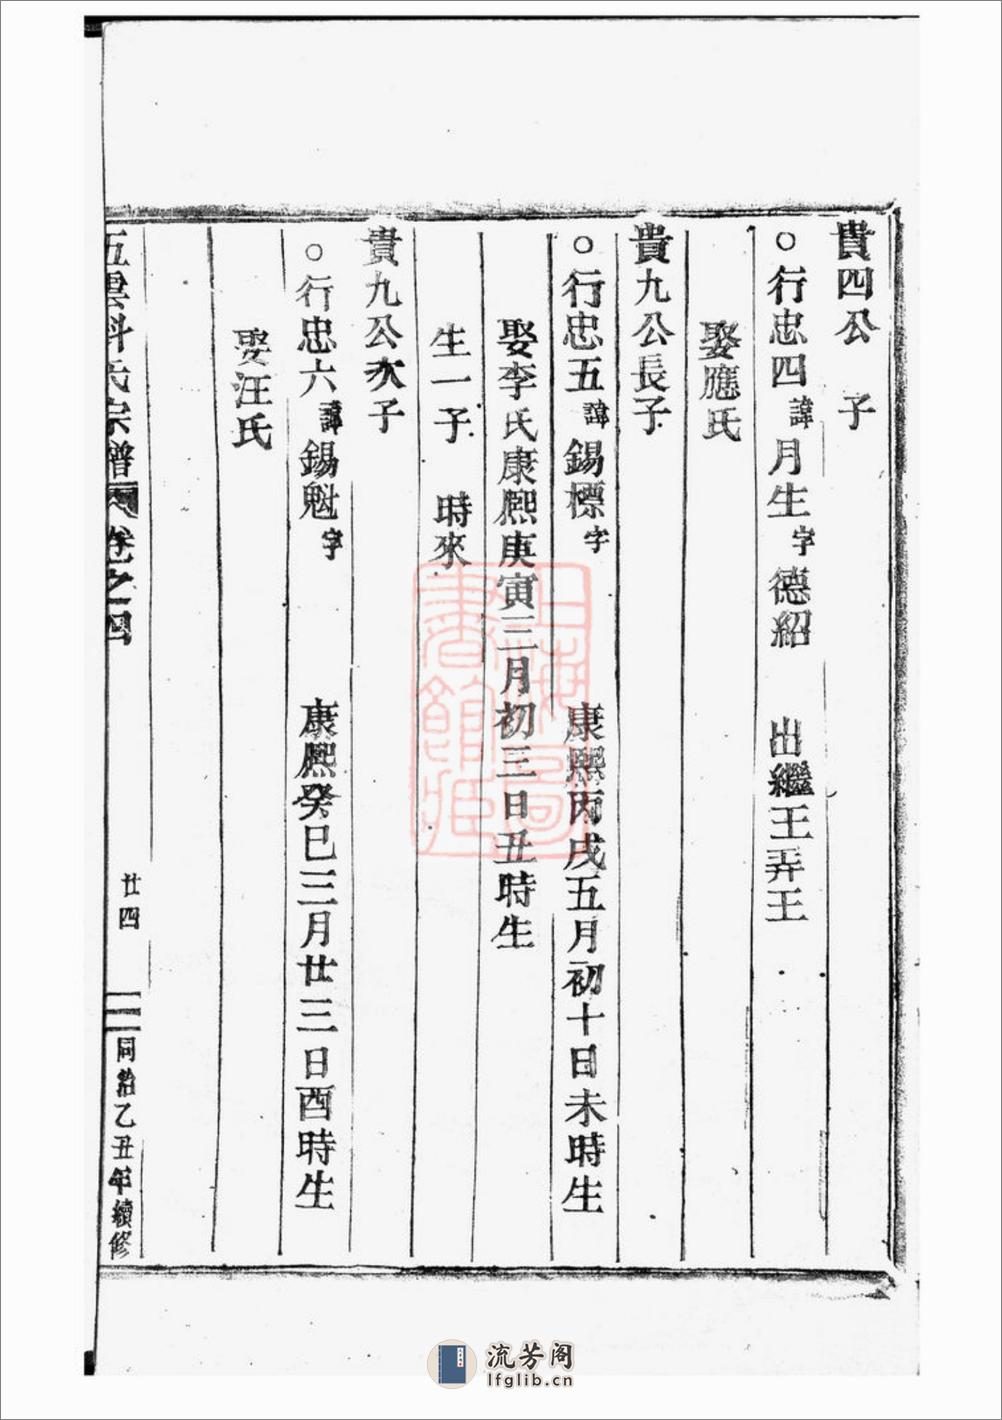 貴四公　子
○行忠四諱月生字德紹　出繼王弄王
娶應氏
貴九公長子
○行忠五諱錫標字　康熙丙戌五月初十日未時生
娶李氏康熙庚寅三月初三日丑時生
生一子　時來
貴九公次子
○行忠六諱錫魁字　康熙癸巳三月廿三日酉時生
娶汪氏
五雲科氏宗譜　卷之四　廿四　同治乙丑年續修
上海圖書館藏
流芳阁
lfglib.cn